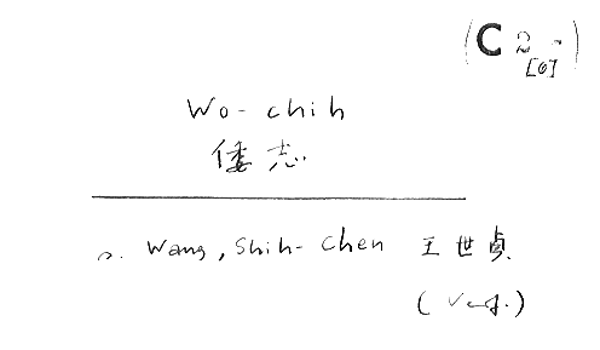 (C 2 - )
[6]
Wo-chih
倭志
Wang, Shih-Chen 王世貞
(Verf.)